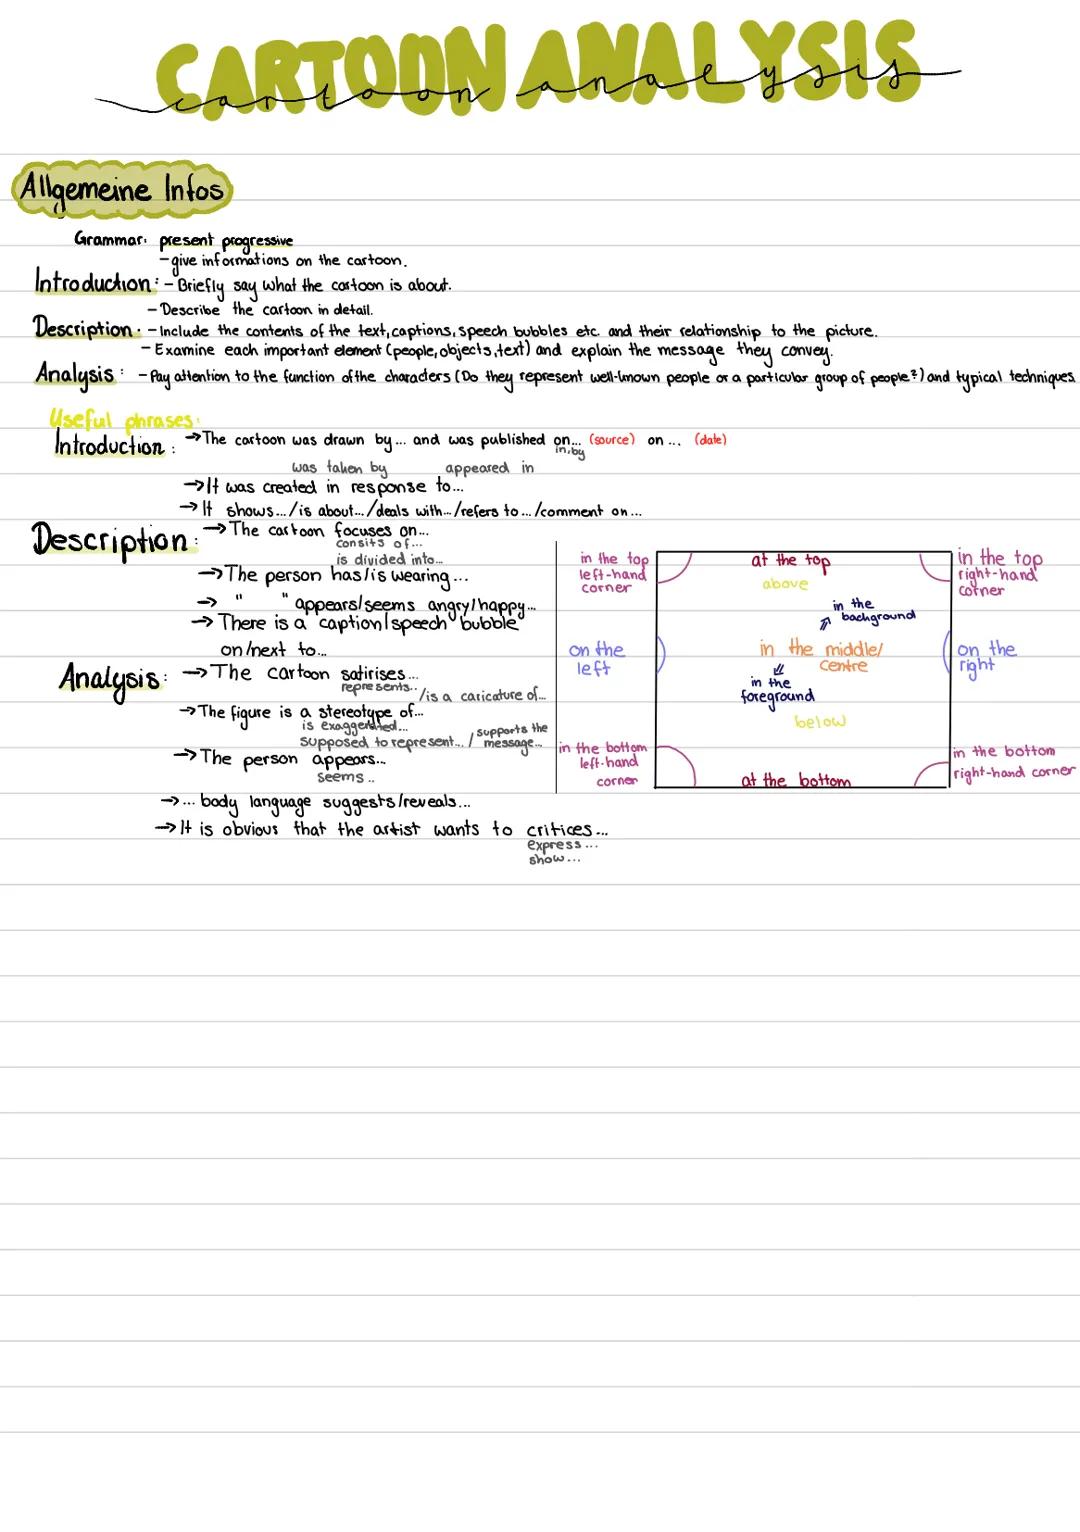 CARTOON ANALYSIS
cartoon analysis
Allgemeine Infos
Grammar: present progressive
- give informations on the cartoon.
Introduction: - Briefly say what the cartoon is about.
- Describe the cartoon in detail.
Description: - Include the contents of the text, captions, speech bubbles etc. and their relationship to the picture.
- Examine each important element (people, objects, text) and explain the message they convey.
Analysis: - Pay attention to the function of the characters (Do they represent well-known people or a particular group of people?) and typical techniques
Useful phrases:
Introduction: → The cartoon was drawn by... and was published on... (source) on ... (date)
in, by
was taken by appeared in
→ It was created in response to...
→ It shows.../is about.../deals with.../refers to .../comment on ...
Description: → The cartoon focuses on...
consits of...
is divided into...
→ The person has/is wearing ...
→ " " appears/seems angry/happy...
→ There is a caption/speech bubble
on/next to...
Analysis: → The cartoon satirises...
represents.. /is a caricature of...
→ The figure is a stereotype of...
is exaggerated...
supposed to represent... / supports the
message...
→ The person appears...
seems ..
→ ... body language suggests/reveals...
→ It is obvious that the artist wants to critices ...
express ...
show ...
in the top
left-hand
corner
at the top
above
in the top
right-hand
corner
in the
background
on the
left
in the middle/
centre
on the
right
in the
foreground
below
in the bottom
left-hand
corner
at the bottom
in the bottom
right-hand corner